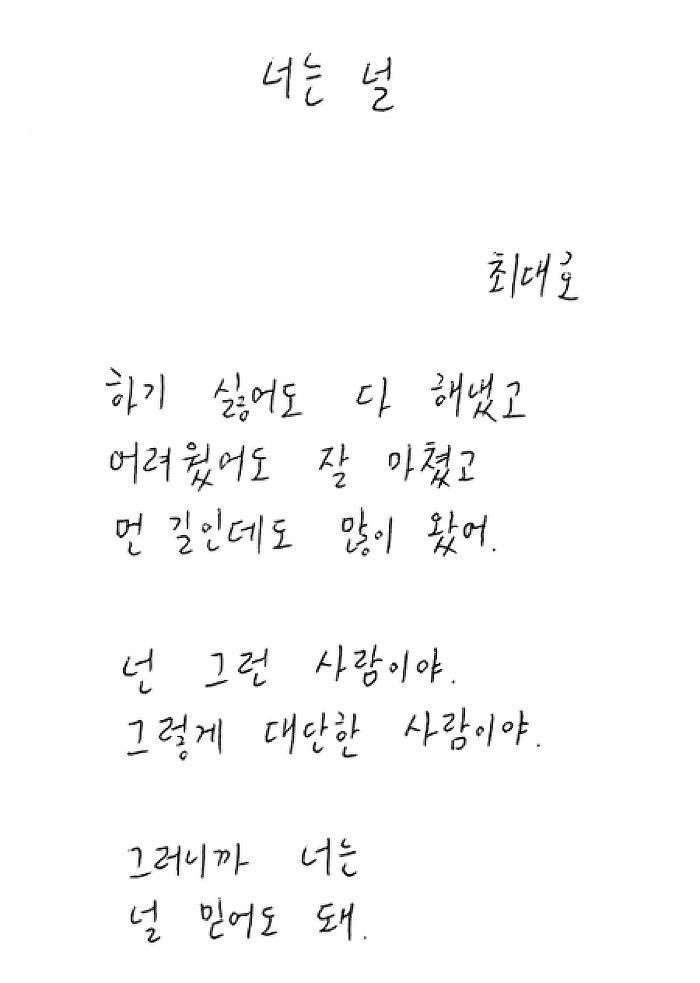 너는 널
최대호
하기 싫어도 다 해냈고
어려웠어도 잘 마쳤고
먼 길인데도 많이 왔어.
넌 그런 사람이야.
그렇게 대단한 사람이야.
그러니까 너는
널 믿어도 돼.